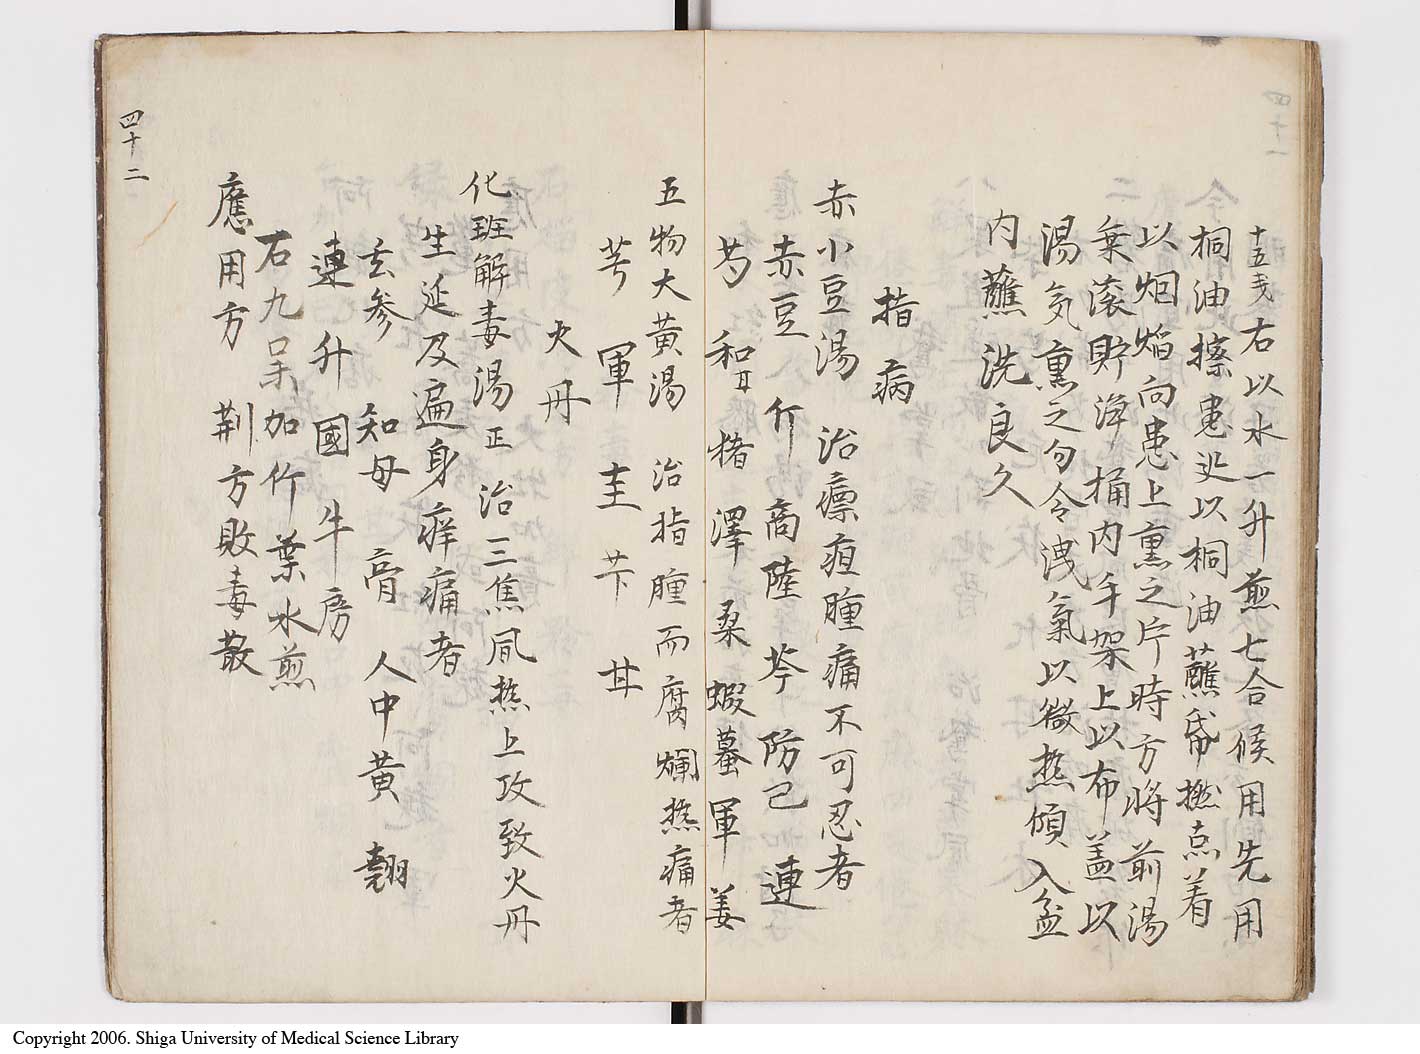 四十一
十五戔右以水一升煎七合候用先用
桐油搽患处以桐油蘸帋撚点着
以烟焰向患上熏之片時方將前湯
乗滚貯浄桶内手架上以布盖以
湯気熏之勿令洩氣以微热傾入盆
内蘸洗良久
指病
赤小豆湯 治瘭疽腫痛不可忍者
赤豆 行 商陸 芩 防己 連
芍 和甘 楮 澤 桒 蝦蟇 軍 姜
五物大黄湯 治指腫而腐爛热痛者
芎 軍 圭 芐 甘
火丹
化班解毒湯 正 治三焦風热上攻致火丹
生延及遍身痒痛者
玄参 知母 膏 人中黄 翹
連 升 國 牛房
右九味加竹葉水煎
應用方 荆方敗毒散
四十二
Copyright 2006. Shiga University of Medical Science Library